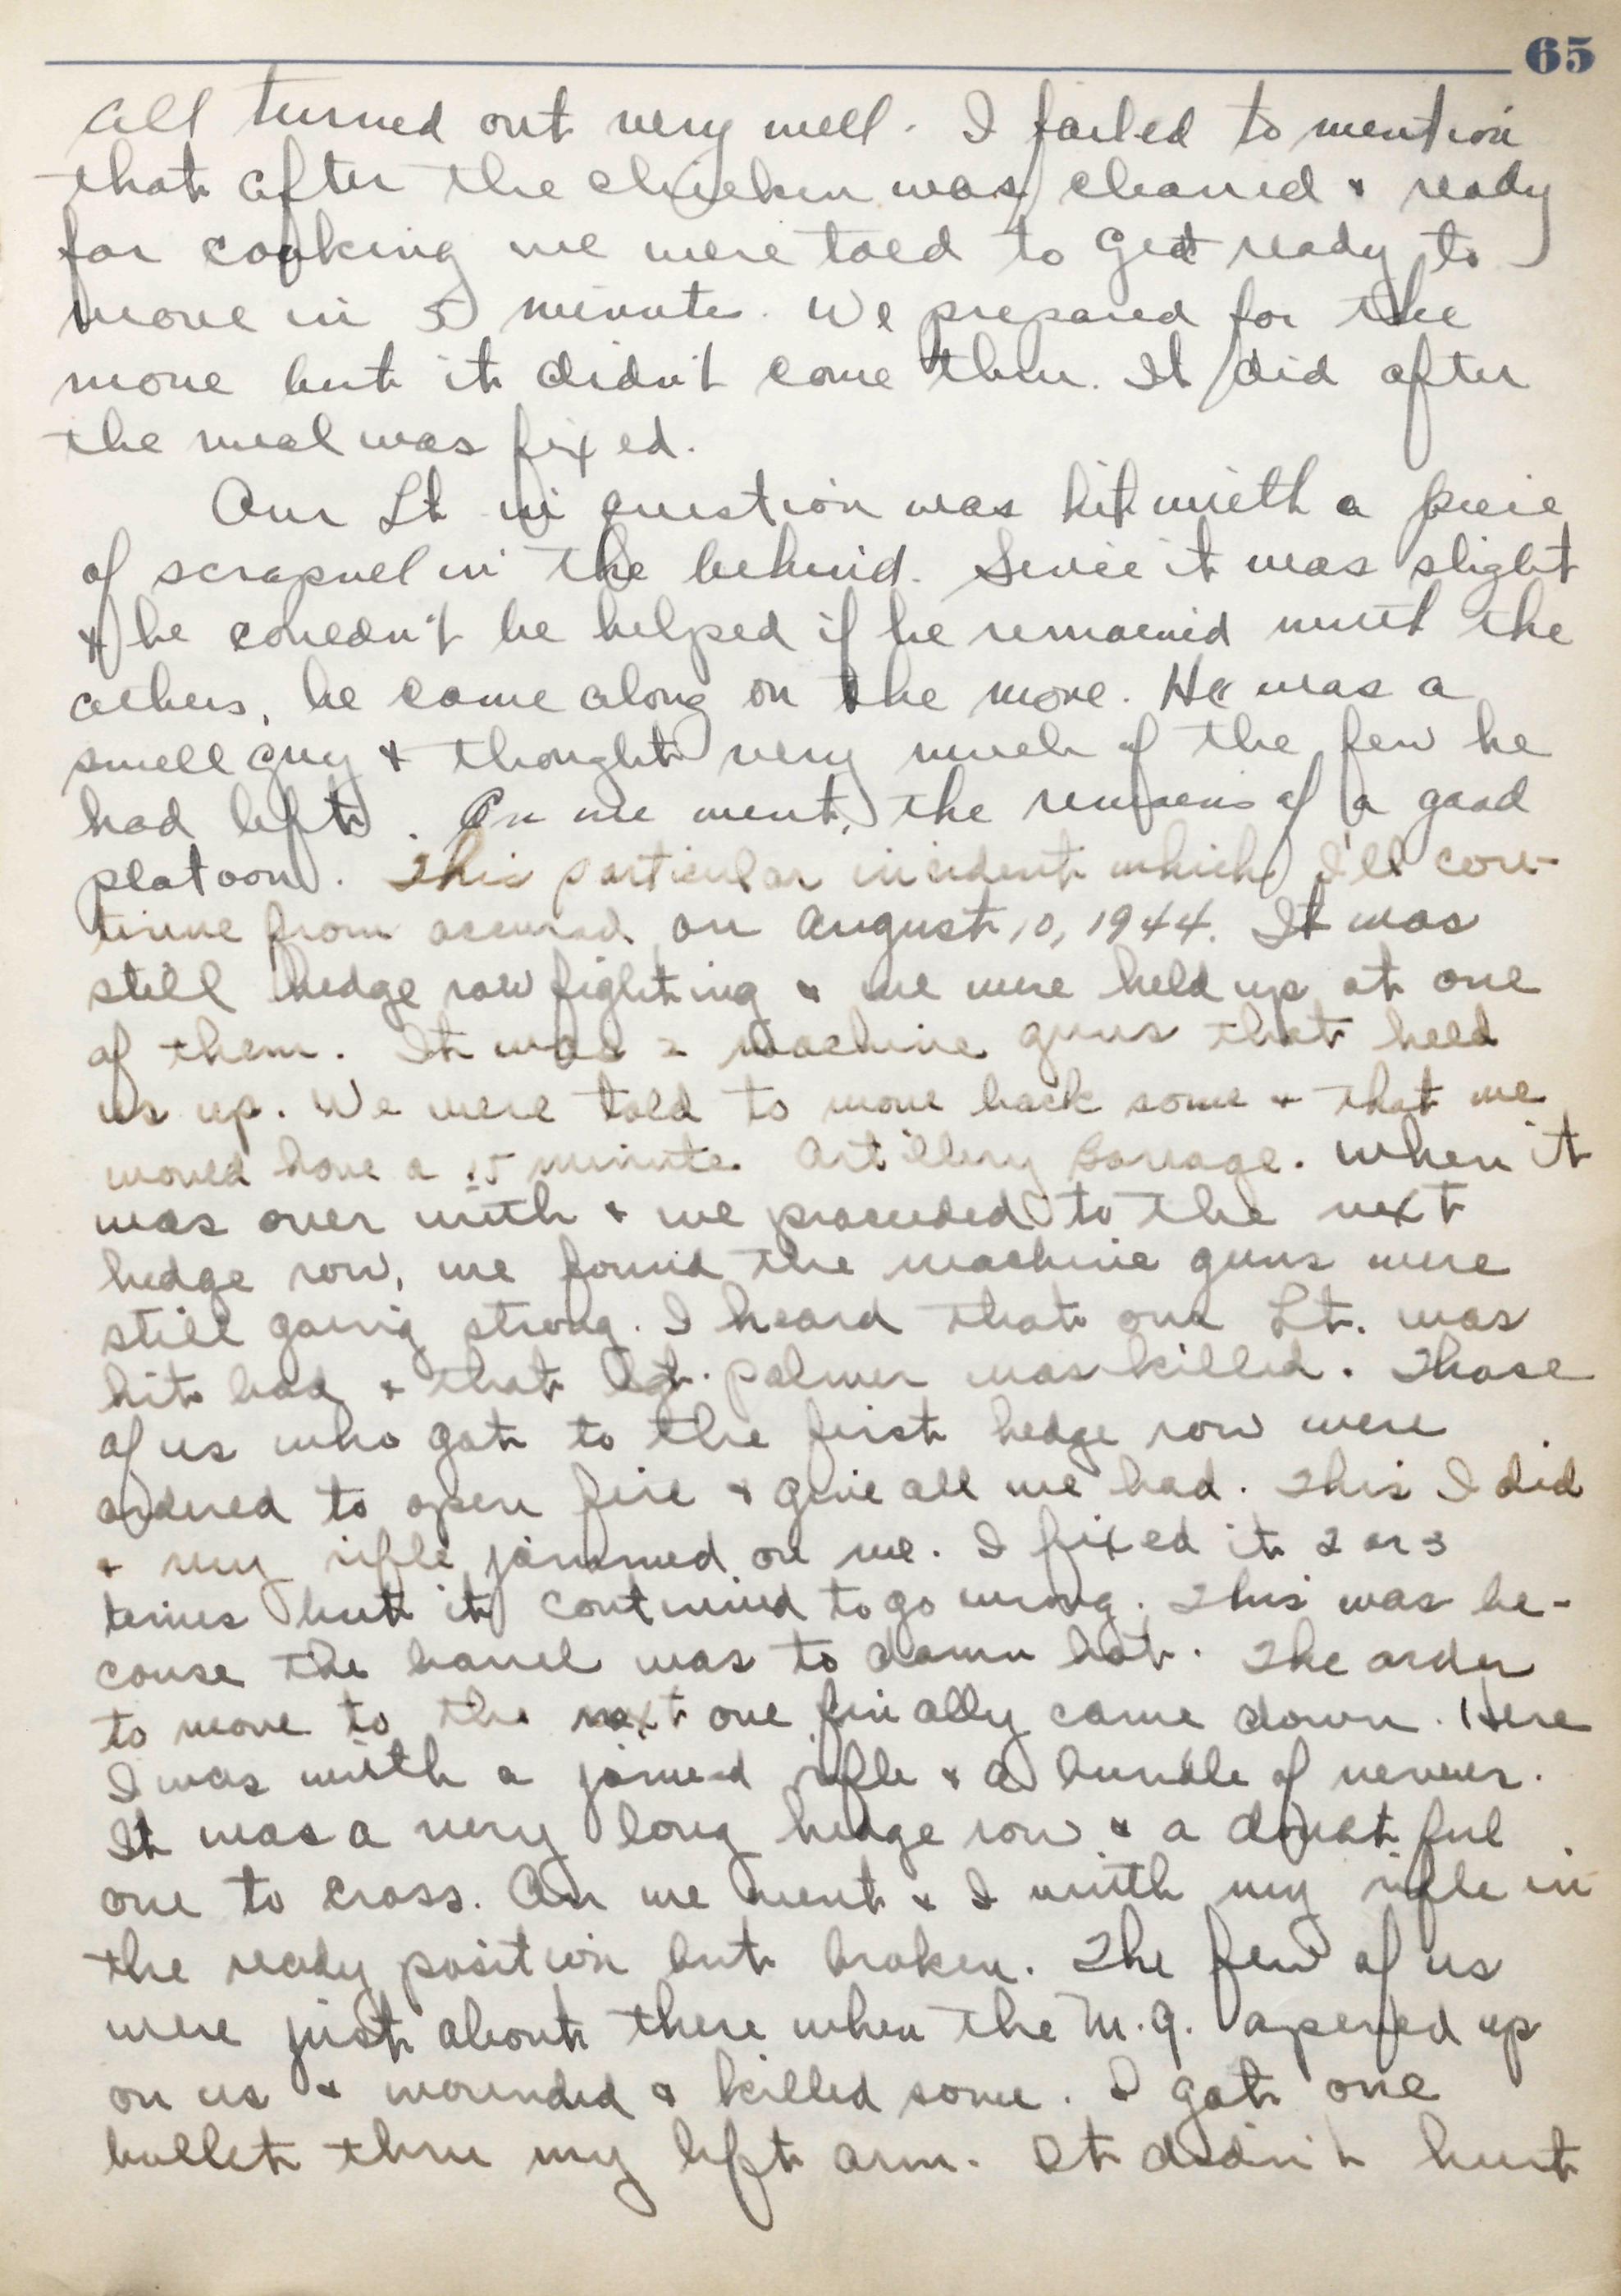 65
all turned out very well. I failed to mention
that after the chicken was cleaned & ready
for cooking we were told to get ready to
move in 5 minutes. We prepared for the
move but it didn't come then. It did after
the meal was fixed.
Our Lt in question was hit with a piece
of scrapnel in the behind. Since it was slight
& he couldn't be helped if he remained with the
others, he came along on the move. He was a
swell guy & thought very much of the few he
had left. On we went, the remains of a good
platoon. This particular incident which I'll con-
tinue from occured on August 10, 1944. It was
still hedge row fighting & we were held up at one
of them. It was 2 machine guns that held
us up. We were told to move back some & that we
would have a 15 minute artillery barrage. When it
was over with & we proceeded to the next
hedge row, we found the machine guns were
still going strong. I heard that our Lt. was
hit bad & that Sgt. Palmer was killed. Those
of us who got to the first hedge row were
ordered to open fire & give all we had. This I did
& my rifle jammed on me. I fixed it 2 or 3
times but it continued to go wrong. This was be-
cause the barrel was to damn hot. The order
to move to the next one finally came down. Here
I was with a jamed rifle & a bundle of nerves.
It was a very long hedge row & a doubtful
one to cross. On we went & I with my rifle in
the ready position but broken. The few of us
were just about there when the M.G. opened up
on us & wounded & killed some. I got one
bullet thru my left arm. It didn't hurt